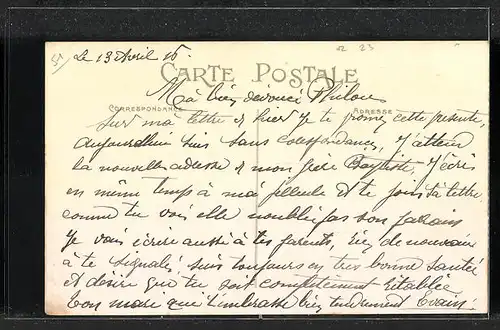 Le 13 Avril 15.
CARTE POSTALE
Ma bien dévouée Philo
CORRESPONDANCE ADRESSE
Sur ma lettre d hier Je te promez cette présente,
aujourdhui suis sans correspondance, J'attend
la nouvelle adresse d mon frère Baptiste, J'écris
en même temps à ma filleule et te joins sa lettre
comme tu vois elle noublie pas son parrain
Je vais écrire aussi à tes parents, rien de nouveau
à te signaler, suis toujours en très bonne santée
et désire que tu soit complètement rétablie
Ton mari qui t'embrasse bien tendrement